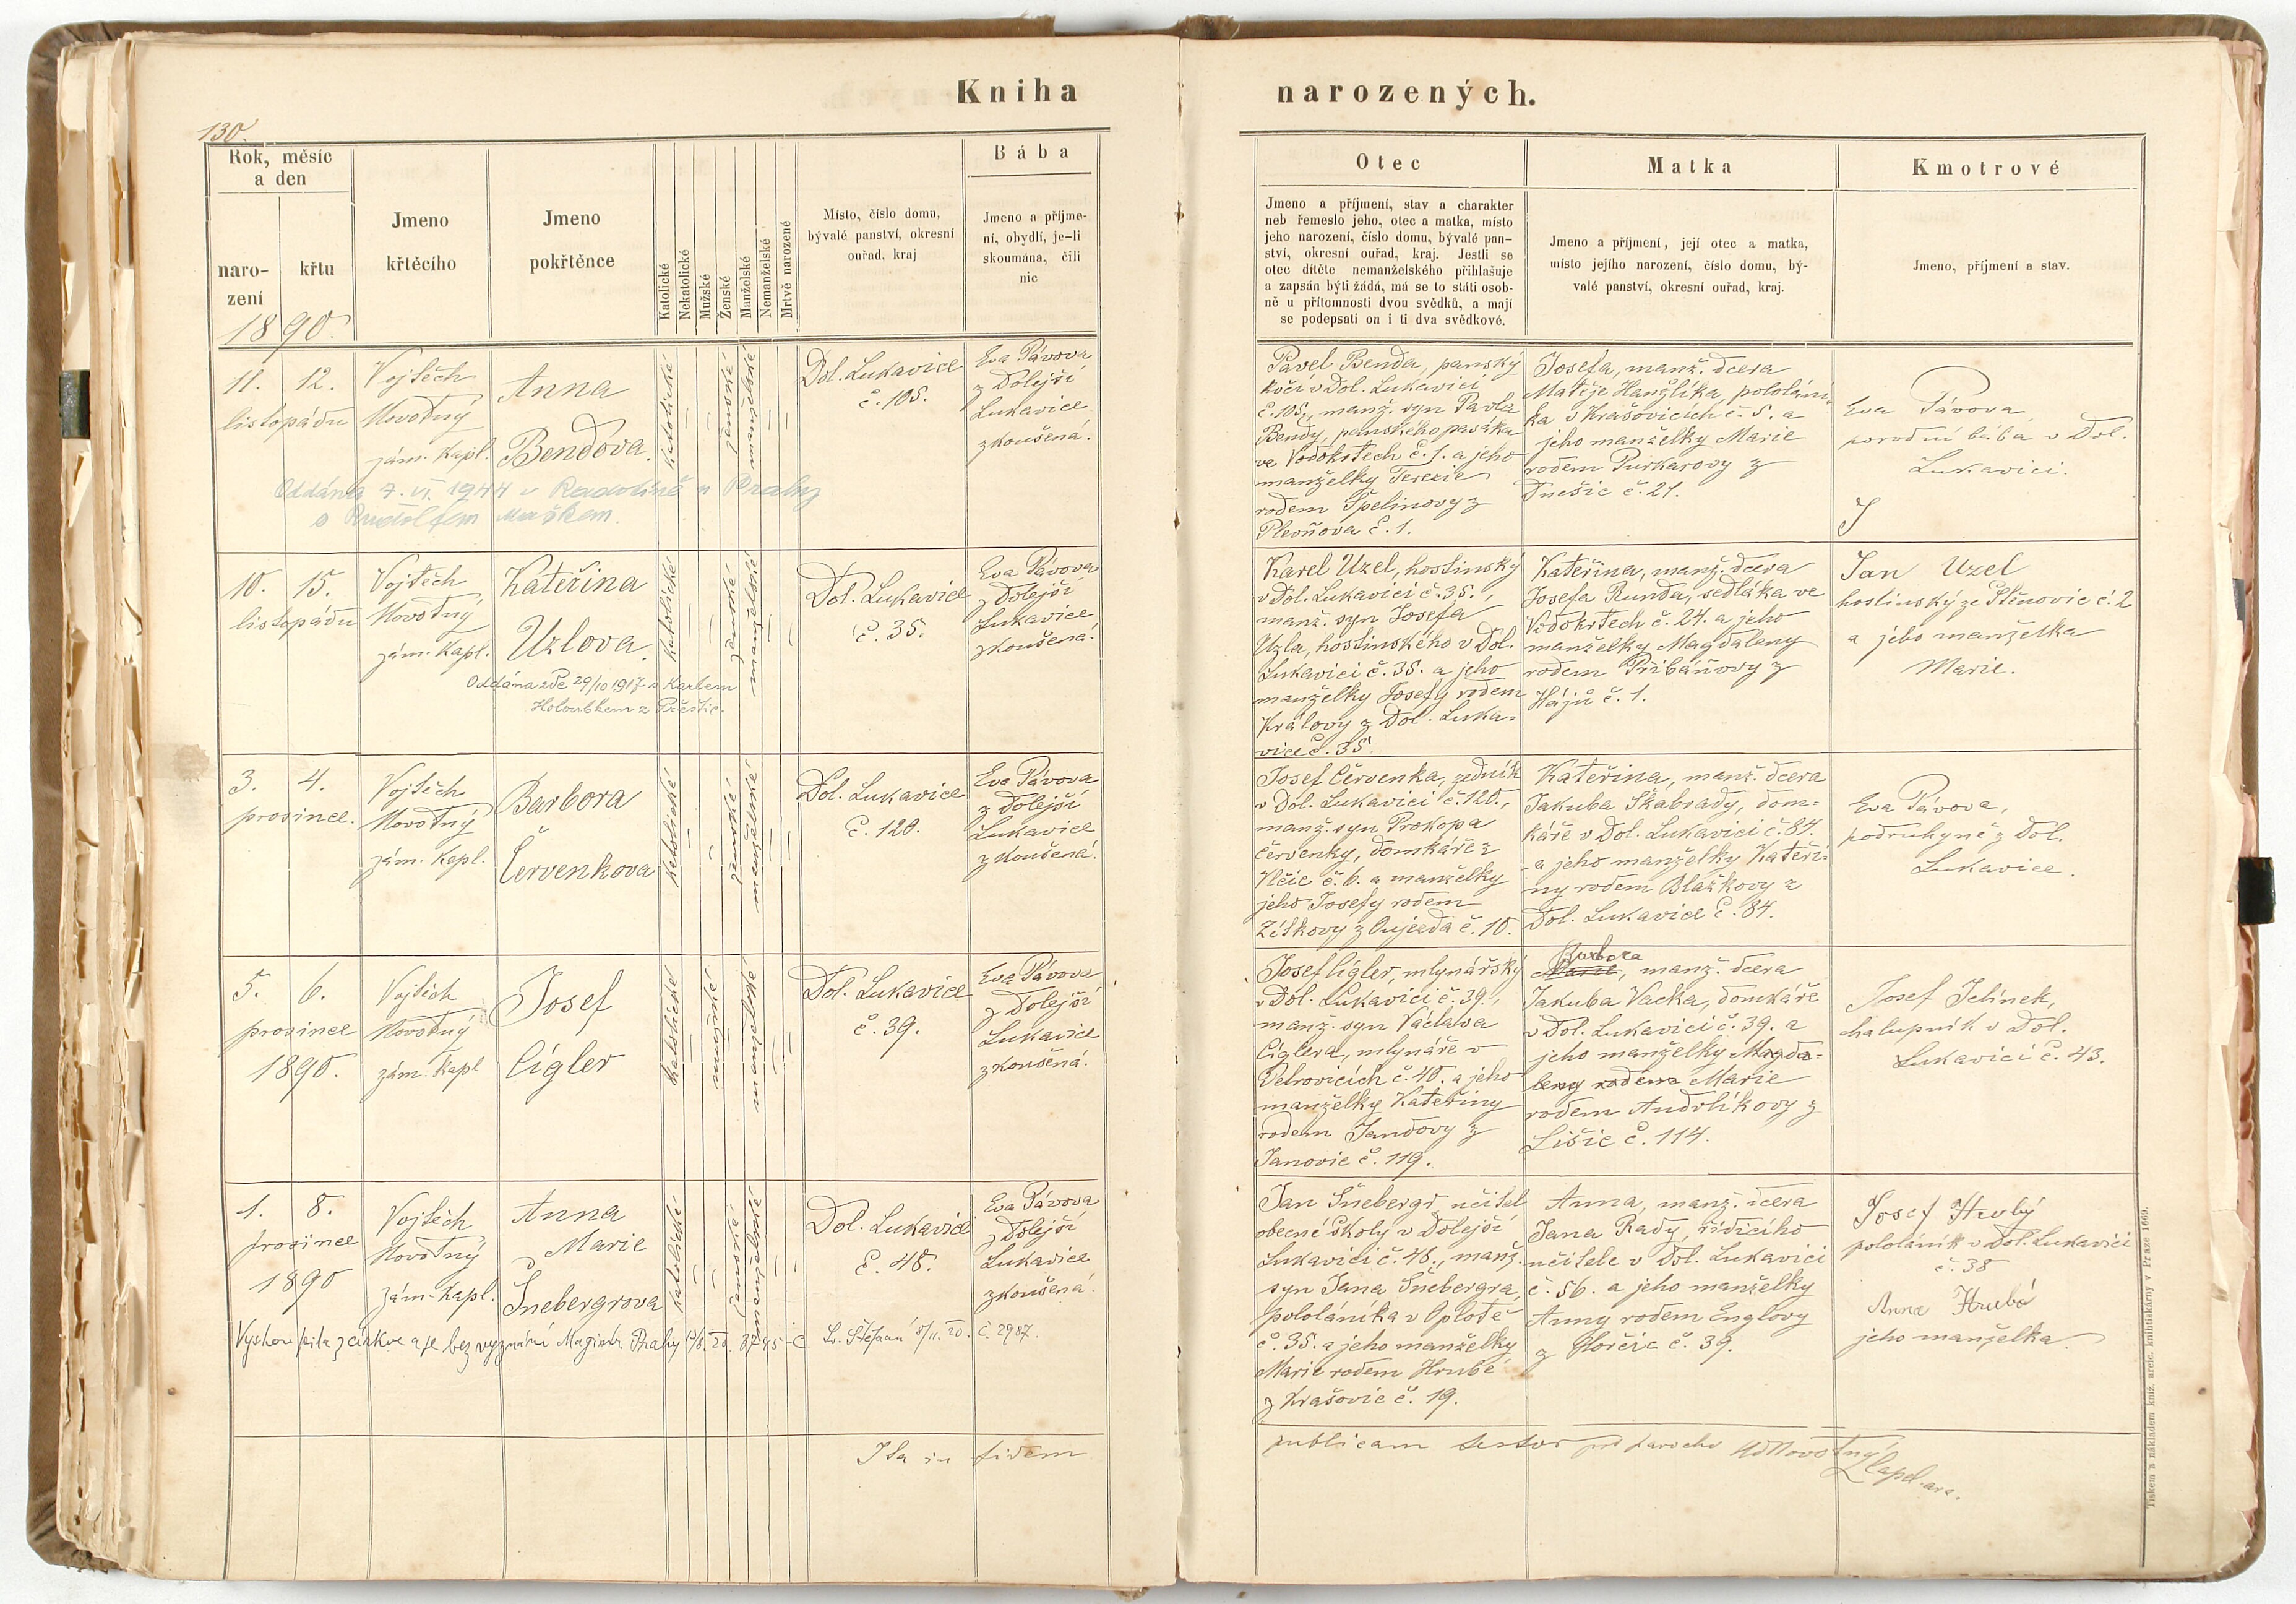 Kniha
narozených.
130.
Rok, měsíc
a den
naro-
zení
křtu
1890.
Jmeno
křtěcího
Jmeno
pokřtěnce
Katolické
Nekatolické
Mužské
Ženské
Manželské
Nemanželské
Mrtvě narozené
Místo, číslo domu,
bývalé panství, okresní
ouřad, kraj
Bába
Jmeno a příjme-
ní, obydlí, je-li
skoumána, čili
nic
Otec
Jmeno a příjmení, stav a charakter
neb řemeslo jeho, otec a matka, místo
jeho narození, číslo domu, bývalé pan-
ství, okresní ouřad, kraj. Jestli se
otec dítěte nemanželského přihlašuje
a zapsán býti žádá, má se to státi osob-
ně u přítomnosti dvou svědků, a mají
se podepsati on i ti dva svědkové.
Matka
Jmeno a příjmení, její otec a matka,
místo jejího narození, číslo domu, bý-
valé panství, okresní ouřad, kraj.
Kmotrové
Jmeno, příjmení a stav.
11. 12.
listopádu
Vojtěch
Novotný
zám. Kapl.
Anna
Bendova.
katolické
ženské
manželské
Dol. Lukavice
č. 105.
Eva Pávova
z Dolejší
Lukavice
zkoušená.
Oddána 7. VI. 1944 v Radotíně u Prahy
s Rudolfem Maškem.
Pavel Benda, panský
kočí v Dol. Lukavici
č. 105., manž. syn Pavla
Bendy, panského pasáka
ve Vodokrtech č. 1. a jeho
manželky Terezie
rodem Špelinovy z
Plevňova č. 1.
Josefa, manž. dcera
Matěje Hanžlíka, pololání-
ka v Krašovicích č. 5. a
jeho manželky Marie
rodem Purkarovy z
Dnešic č. 21.
Eva Pávova
porodní bába v Dol.
Lukavici.
10. 15.
listopádu
Vojtěch
Novotný
zám. Kapl.
Kateřina
Uzlova.
katolické
ženské
manželské
Dol. Lukavice
č. 35.
Eva Pávova
z Dolejší
Lukavice
zkoušená.
Oddána zde 29/10 1917 s Karlem
Holoubkem z Přeštic.
Karel Uzel, hostinský
v Dol. Lukavici č. 35.,
manž. syn Josefa
Uzla, hostinského v Dol.
Lukavici č. 35. a jeho
manželky Josefy rodem
Královy z Dol. Luka-
vice č. 35.
Kateřina, manž. dcera
Josefa Runda, sedláka ve
Vodokrtech č. 24. a jeho
manželky Magdaleny
rodem Přibáňovy z
Hájů č. 1.
Jan Uzel
hostinský ze Štěnovic č. 2
a jeho manželka
Marie.
3. 4.
prosince.
Vojtěch
Novotný
zám. Kapl.
Barbora
Červenkova
katolické
ženské
manželské
Dol. Lukavice
č. 120.
Eva Pávova
z Dolejší
Lukavice
zkoušená.
Josef Červenka, zedník
v Dol. Lukavici č. 120.,
manž. syn Prokopa
Červenky, domkáře z
Vlčic č. 6. a manželky
jeho Josefy rodem
Zítkovy z Oujezda č. 10.
Kateřina, manž. dcera
Jakuba Škabrady, dom-
káře v Dol. Lukavici č. 84.
a jeho manželky Kateři-
ny rodem Blažkovy z
Dol. Lukavice č. 84.
Eva Pávova,
podruhyně z Dol.
Lukavice.
5. 6.
prosince
1890.
Vojtěch
Novotný
zám. Kapl
Josef
Cígler
katolické
mužské
manželské
Dol. Lukavice
č. 39.
Eva Pávova
z Dolejší
Lukavice
zkoušená.
Josef Cígler, mlynářský
v Dol. Lukavici č. 39.,
manž. syn Václava
Cíglera, mlynáře v
Petrovicích č. 40. a jeho
manželky Kateřiny
rodem Jandovy z
Janovic č. 119.
Barbora
Marie, manž. dcera
Jakuba Vacka, domkáře
v Dol. Lukavici č. 39. a
jeho manželky Magda-
leny rodem Marie
rodem Andrlíkovy z
Lišic č. 114.
Josef Jelínek,
chalupník v Dol.
Lukavici č. 43.
1. 8.
prosince
1890
Vojtěch
Novotný
zám. Kapl.
Anna
Marie
Šnebergrova
katolické
ženské
manželské
Dol. Lukavice
č. 48.
Eva Pávova
z Dolejší
Lukavice
zkoušená.
Vystoupila z církve a je bez vyznání Magistr. Prahy 13/8. 20. 87445 č. Sv. Štěpán 8/11. 20. č. 2987.
Jan Šnebergr, učitel
obecné školy v Dolejší
Lukavici č. 48., manž.
syn Jana Šnebergra,
pololáníka v Oplotě
č. 35. a jeho manželky
Marie rodem Hrubé
z Krašovic č. 19.
Anna, manž. dcera
Jana Rady, řídícího
učitele v Dol. Lukavici
č. 56. a jeho manželky
Anny rodem Englovy
z Horčic č. 39.
Josef Hrubý
pololáník v Dol. Lukavici
č. 38
Anna Hrubá
jeho manželka
Ita in fidem
publicam testor pro parocho Novotný
Capel.
Tiskem a nákladem kníž. arcib. knihtiskárny v Praze 1869.